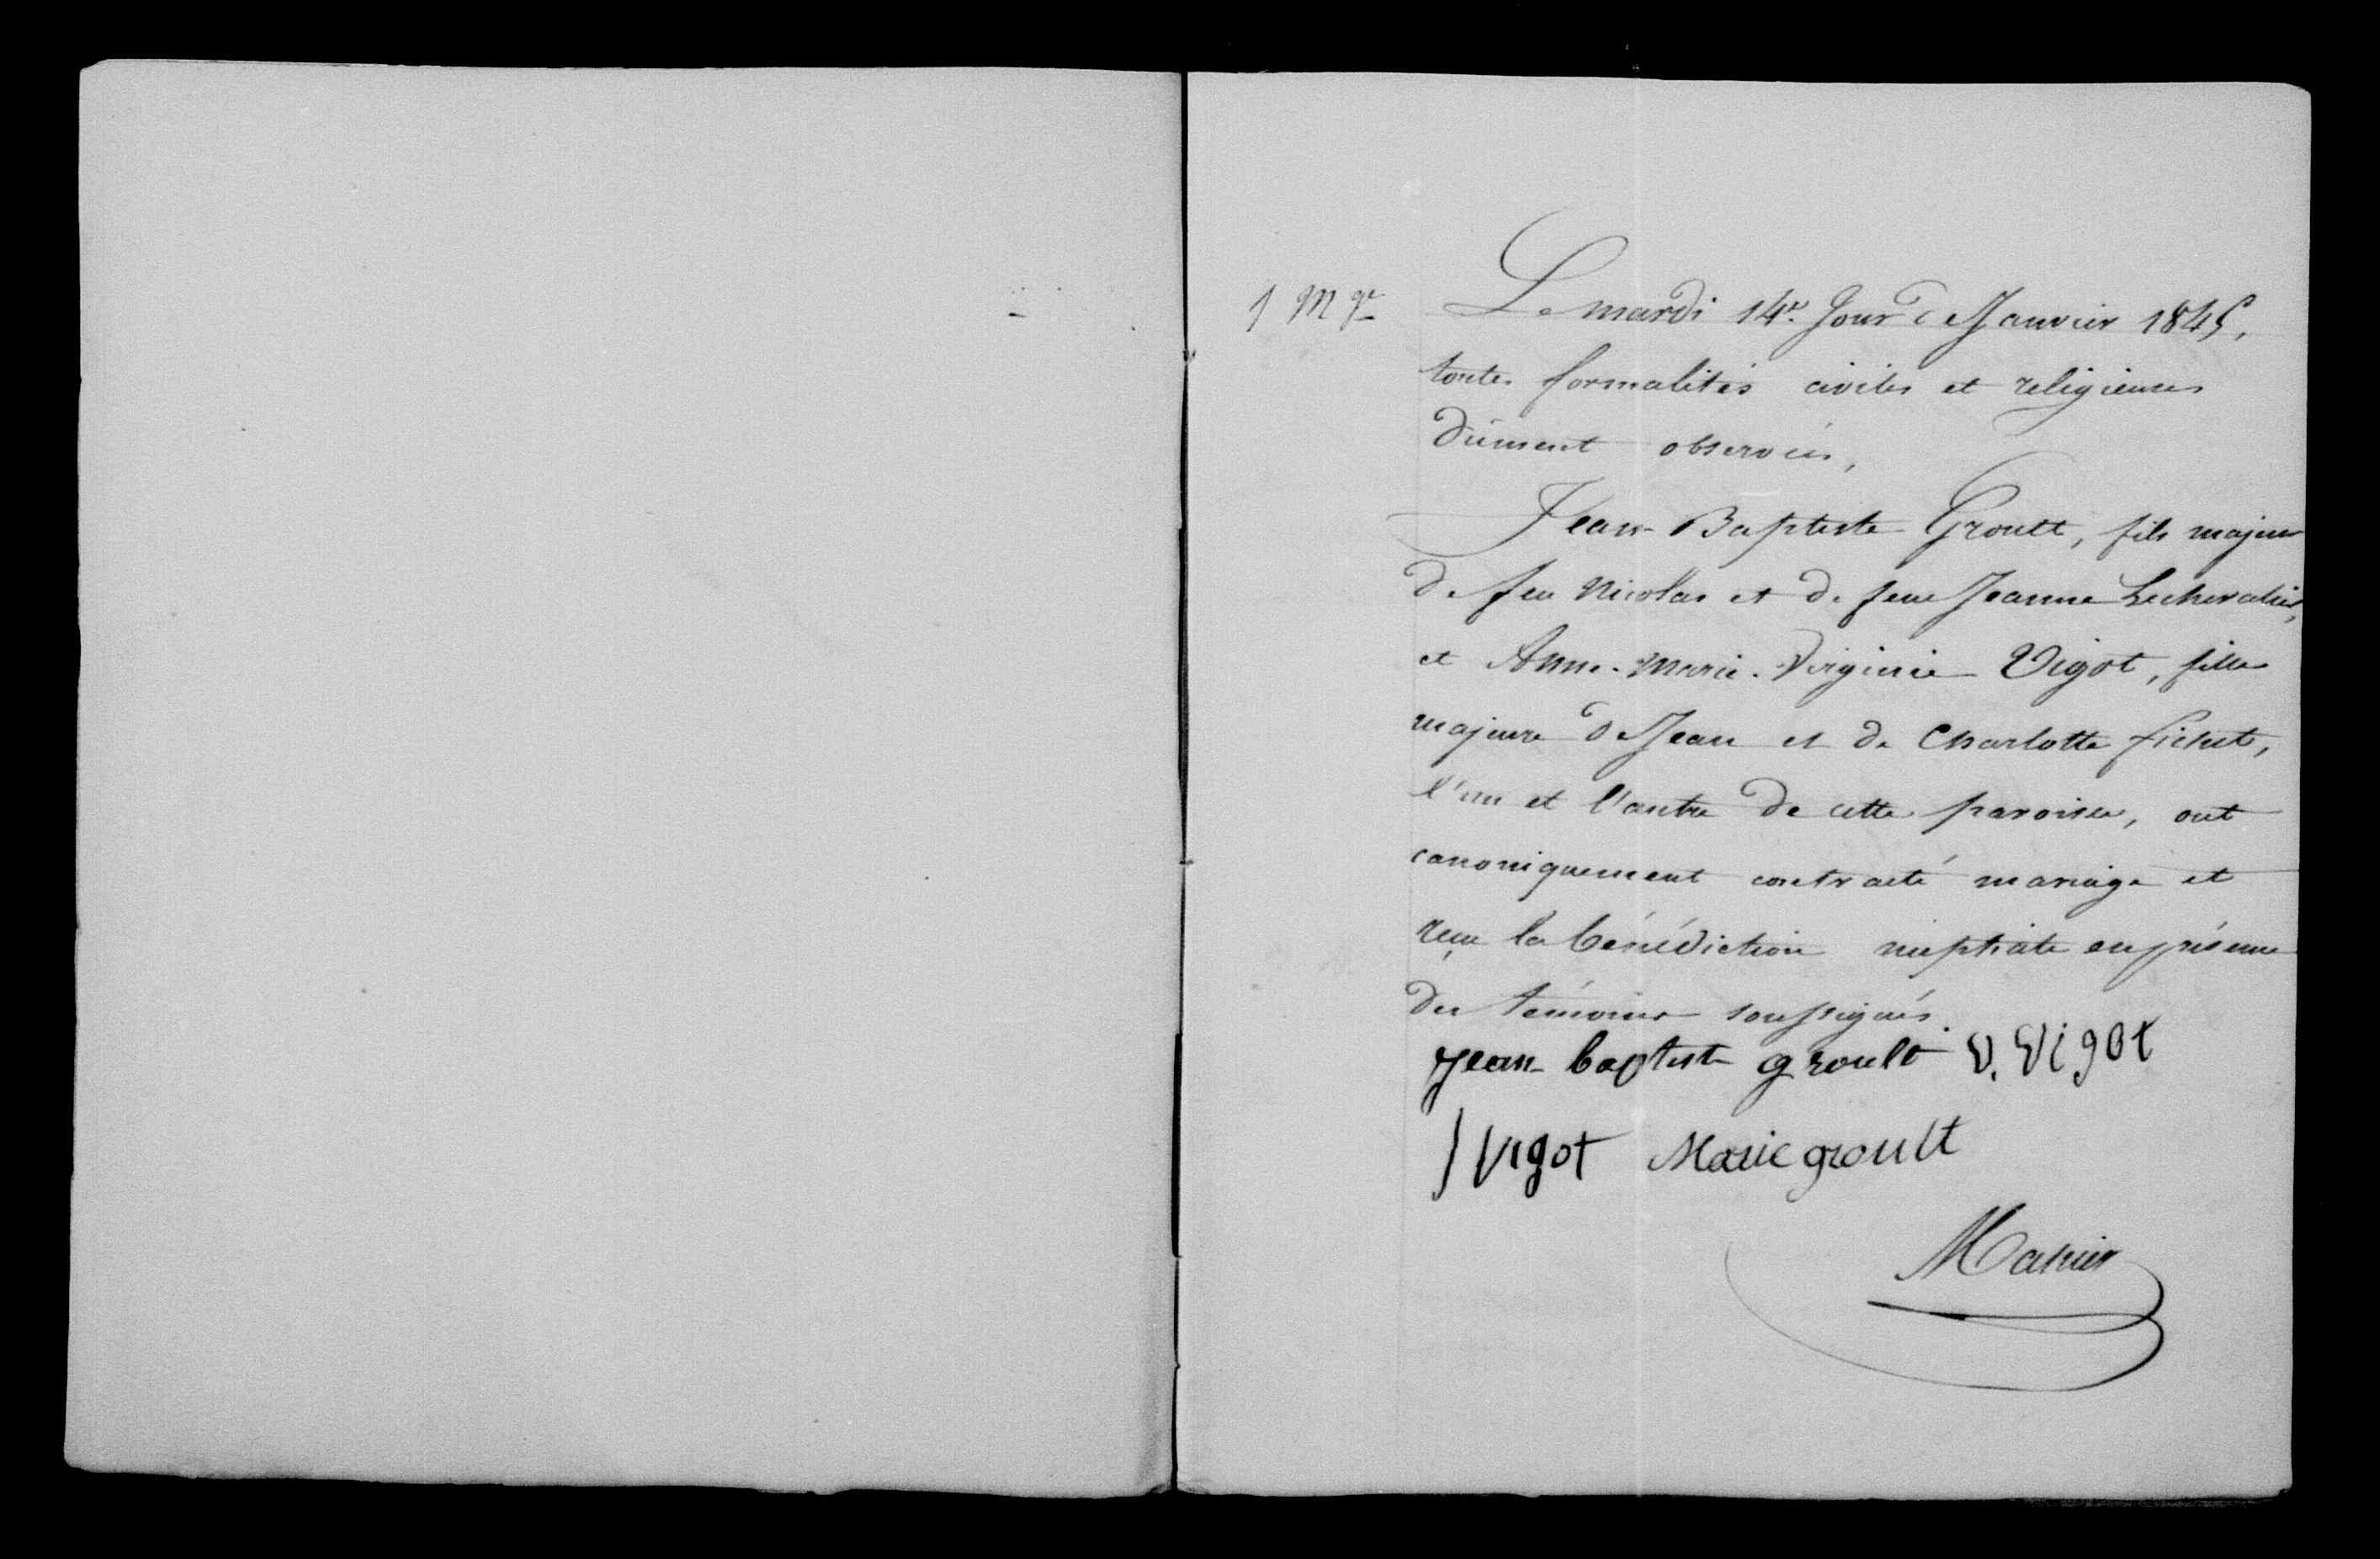 1 Mge
Le mardi 14e. Jour de Janvier 1845,
toutes formalités civiles et religieuses
dûment observées,
Jean-Baptiste Groult, fils majeur
de feu Nicolas et de feue Jeanne Lechevalier,
et Anne-Marie-Virginie Vigot, fille
majeure de Jean et de Charlotte fichet,
l'un et l'autre de cette paroisse, ont
canoniquement contracté mariage et
reçu la bénédiction nuptiale en présence
des témoins soussignés.
Jean baptiste groult V. Vigot
J Vigot Marie groult
Mahier